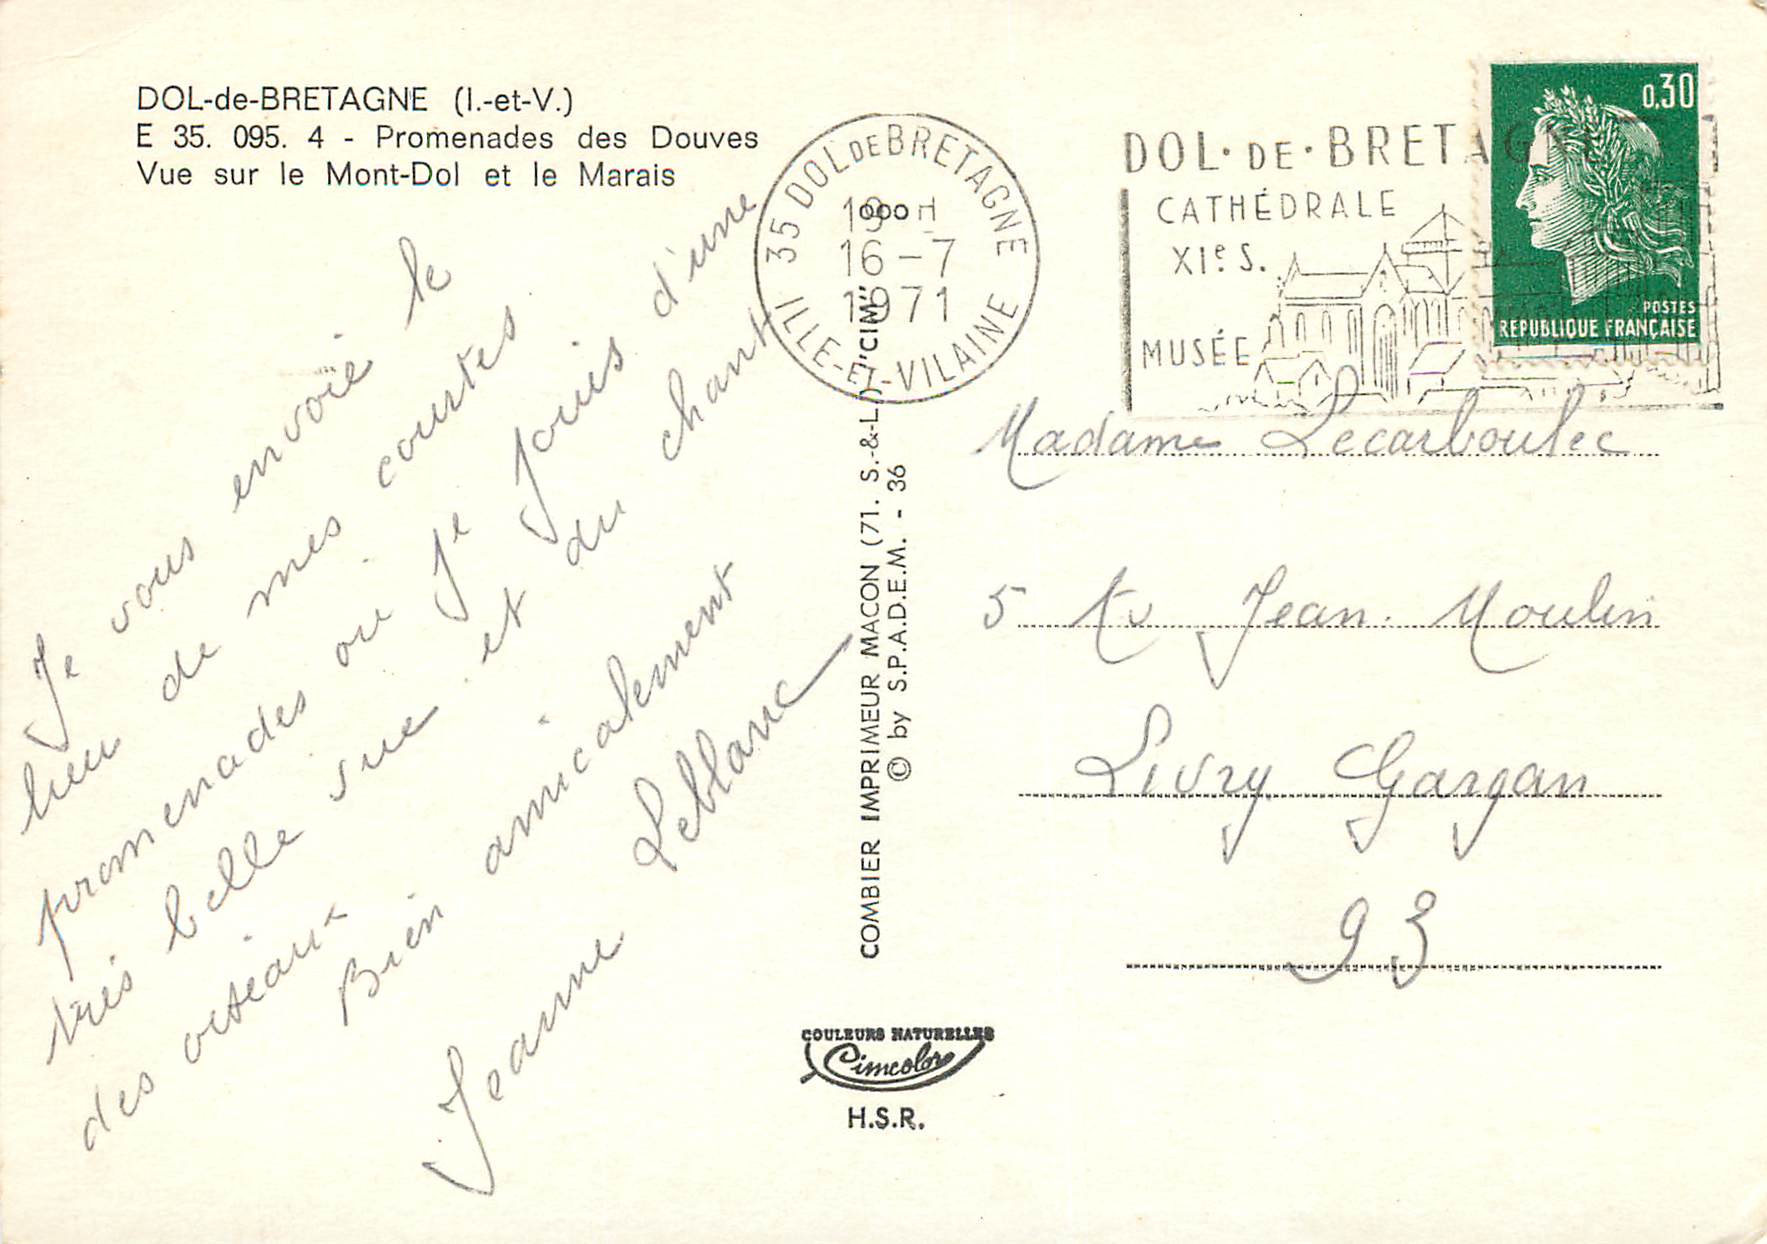 DOL-de-BRETAGNE (I.-et-V.)
E 35. 095. 4 - Promenades des Douves
Vue sur le Mont-Dol et le Marais
Je vous envoie le
lieu de mes courtes
promenades où je jouis d'une
très belle vue et du chant
des oiseaux
Bien amicalement
Jeanne Leblanc
35 DOL DE BRETAGNE
16-7
1971
ILLE-ET-VILAINE
DOL·DE·BRETAGNE
CATHÉDRALE
XIe S.
MUSÉE
0,30
POSTES
REPUBLIQUE FRANÇAISE
COMBIER IMPRIMEUR MACON (71. S.-&-L.) "CIM"
© by S.P.A.D.E.M. - 36
Madame Lecarboulec
5 Av Jean. Moulin
Livry Gargan
93
COULEURS NATURELLES
Cimcolor
H.S.R.